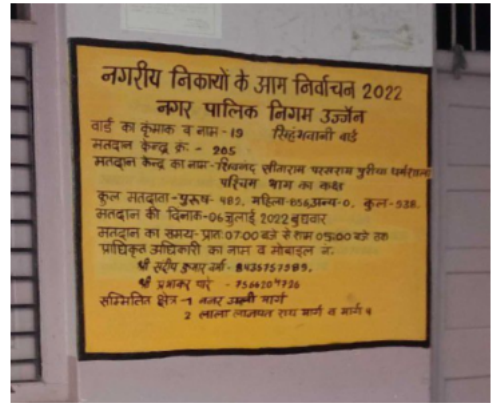 नगरीय निकायों के आम निर्वाचन 2022
नगर पालिक निगम उज्जैन
वार्ड का क्रमाक व नाम - 19 सिंहभवानी वार्ड
मतदान केन्द्र क्र. - 205
मतदान केन्द्र का नाम - सीताराम परसराम धर्मशाला
पश्चिम भाग का कक्ष
कुल मतदाता - पुरूष - 482, महिला - 456, अन्य - 0, कुल - 938.
मतदान की दिनाक - 06 जुलाई 2022 बुधवार
मतदान का समय - प्रातः 07:00 बजे से शाम 05:00 बजे तक
प्राधिकृत अधिकारी का नाम व मोबाइल नं.
श्री कुमार वर्मा -
श्री प्रभाकर - 7566204726
सम्मिलित क्षेत्र - 1 मार्ग
2 लाला लाजपत राय मार्ग व मार्ग